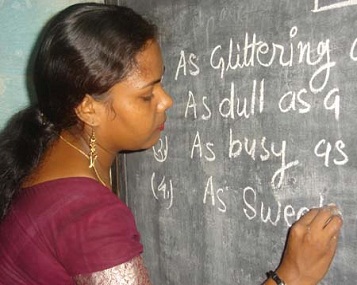 As Glittering a
As dull as a
(3) As busy as
(4) As Swee